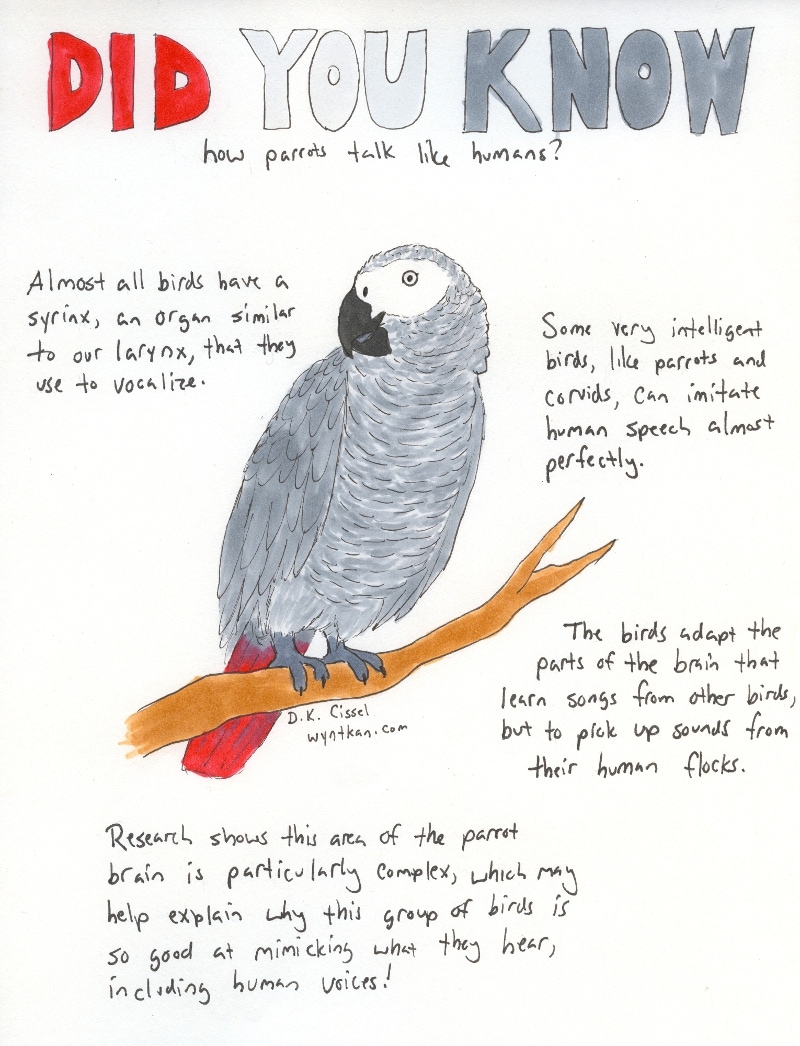 DID YOU KNOW
how parrots talk like humans?
Almost all birds have a
syrinx, an organ similar
to our larynx, that they
use to vocalize.
Some very intelligent
birds, like parrots and
corvids, can imitate
human speech almost
perfectly.
The birds adapt the
parts of the brain that
learn songs from other birds,
but to pick up sounds from
their human flocks.
D.K. Cissel
wyntkan.com
Research shows this area of the parrot
brain is particularly complex, which may
help explain why this group of birds is
so good at mimicking what they hear,
including human voices!